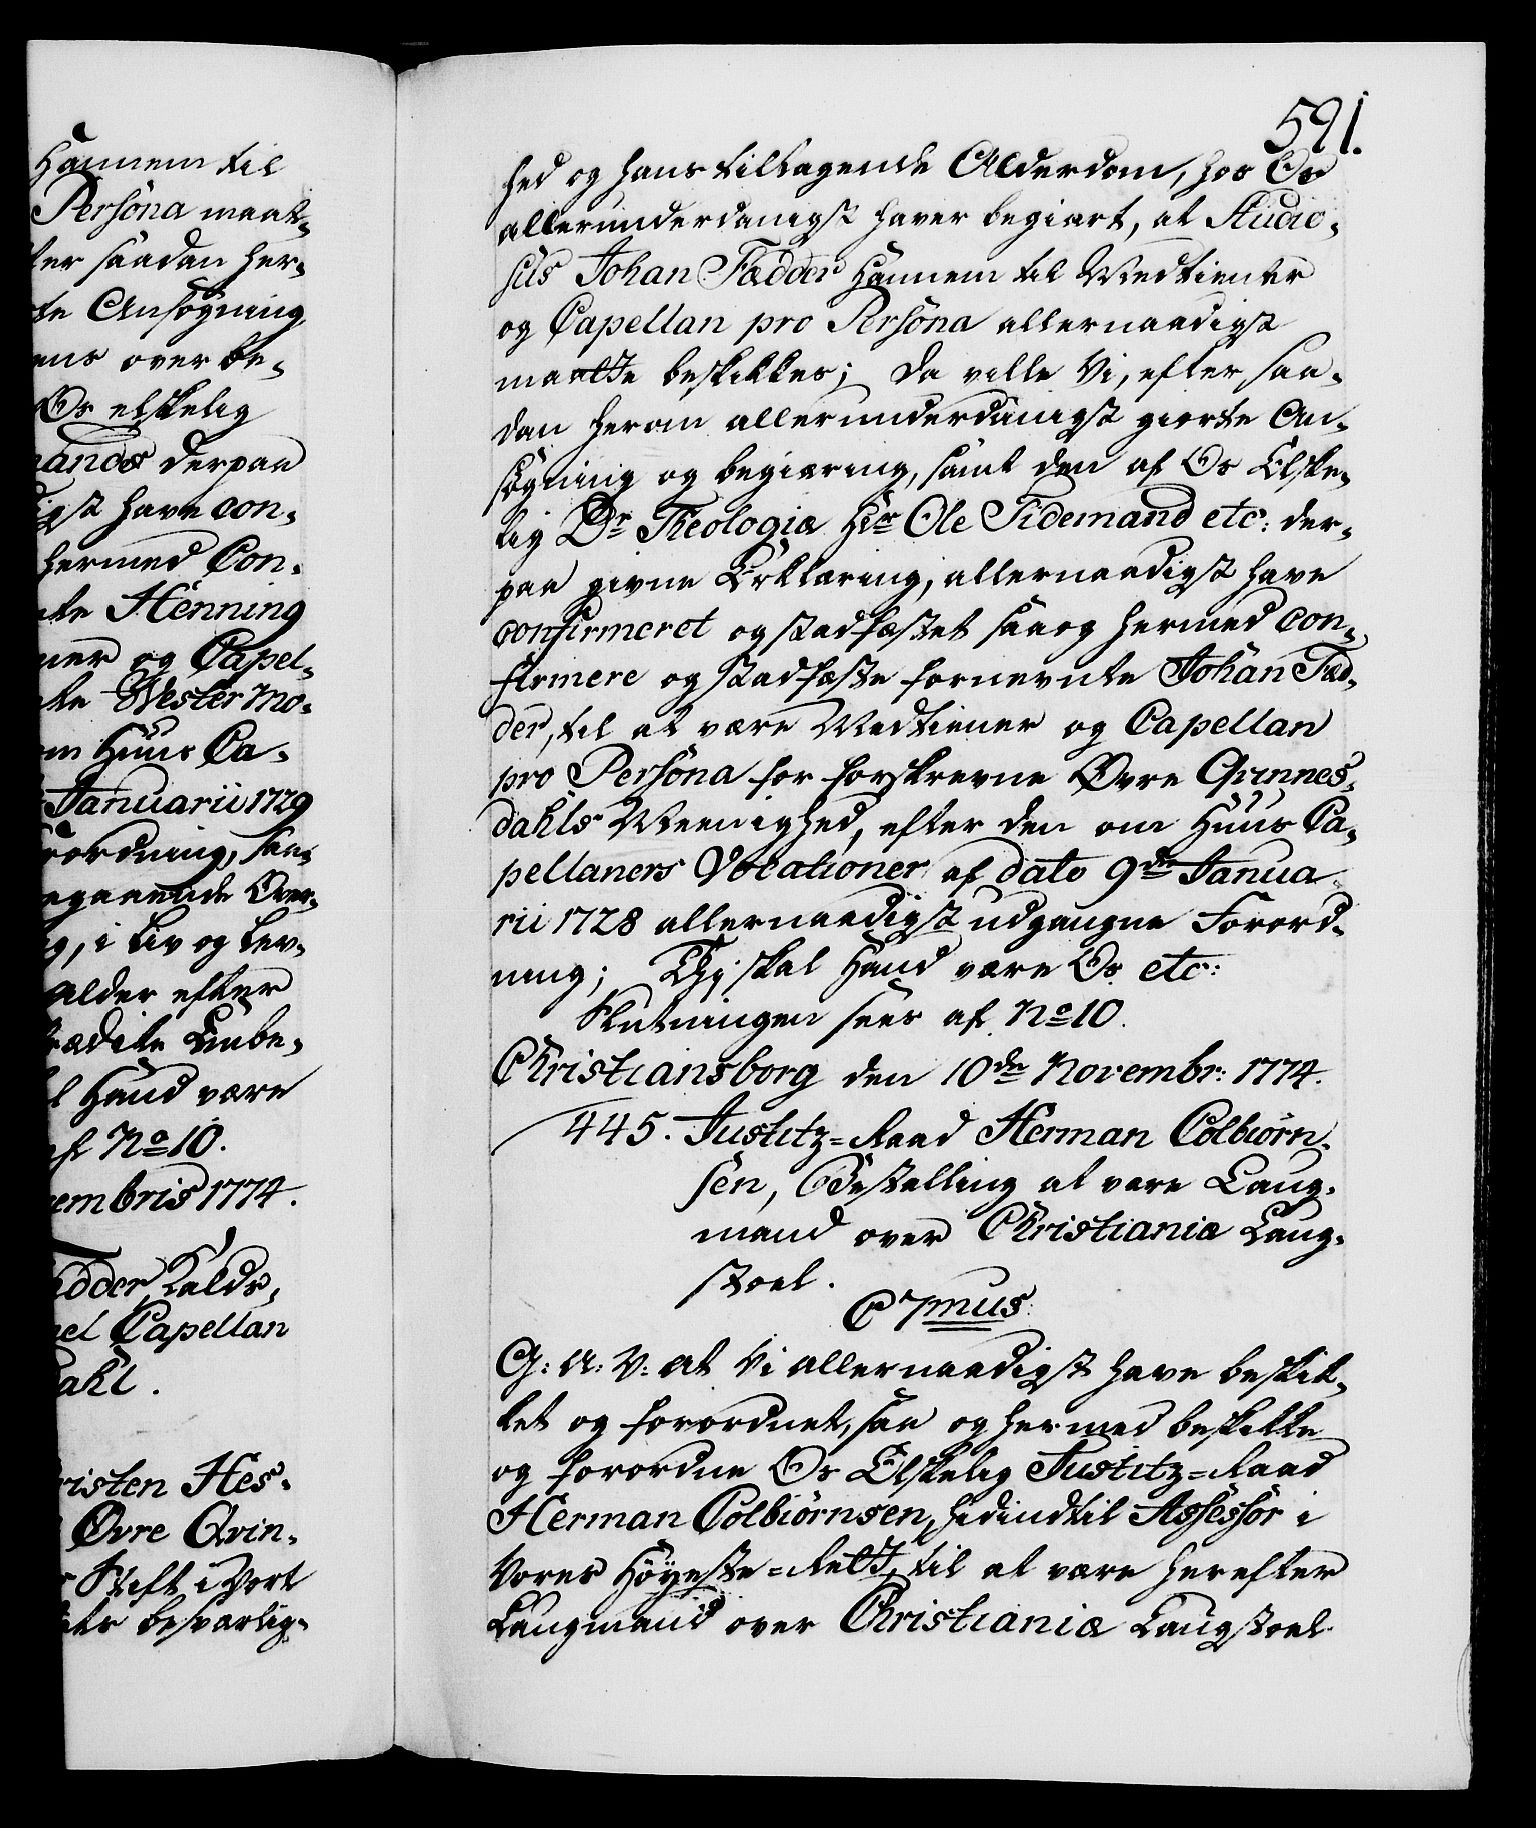 Hannem til
Persona maat-
ter saadan her-
te Ansøgning
ens over be-
Os elskelig
mands derpaa
igst have con-
hermed Con-
te Henning
ner og Capel-
te Wester Mo-
om Huus Ca-
Januarii 1729
rordning, saa
Over-
g, i Liv og Lev-
alder efter
Embe-
l Hand være
af No 10.
embris 1774.
ædder, Kalds-
nel Capellan
dahl.
risten Hes-
Øvre Qvin-
Stift i Vort
besværlig-
591.
hed og hans tiltagende Alderdom, hos Os
allerunderdanigst haver begiært, at Studio-
sus Johan Fædder Hannem til Medtiener
og Capellan pro Persona allernaadigst
maatte beskikkes; Da ville Vi, efter saa-
dan herom allerunderdanigst giorte An-
søgning og begiæring, samt den af Os Elske-
lig Dr Theologiæ Hr Ole Tidemand etc: der-
paa givne Erklæring, allernaadigst have
confirmeret og stadfæstet saa og hermed con-
firmere og stadfæste fornevnte Johan Fæd-
der, til at være Medtiener og Capellan
pro Persona for forskrevne Øvre Qvinnes-
dahls Meenighed, efter den om Huus Ca-
pellaners Vocationer af dato 9de Janua-
rii 1728 allernaadigst udgangne Forord-
ning; Thi skal Hand være Os etc:
Slutningen sees af No 10.
Christiansborg den 10de Novembr: 1774.
445. Justitz=Raad Herman Colbiørn-
sen, Bestelling at være Laug-
mand over Christianiæ Laug-
stoel.
C 7mus:
G: A: V: at Vi allernaadigst have beskik-
ket og forordnet, saa og hermed beskikke
og forordne Os Elskelig Justitz=Raad
Herman Colbiørnsen, hidindtil Assessor i
Vores Høyeste=Rett, til at være herefter
Laugmand over Christianiæ Laugstoel